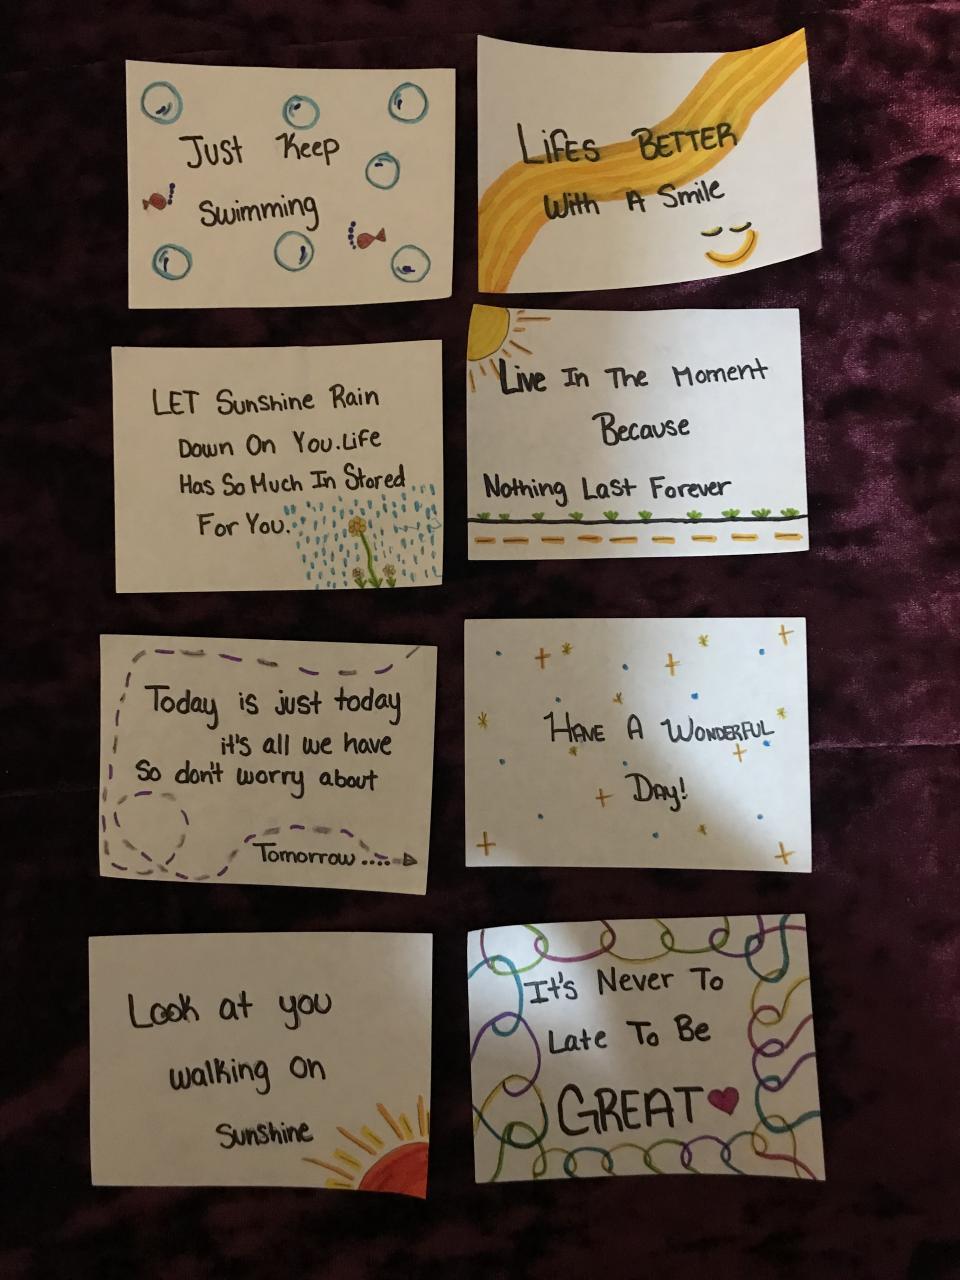 Just Keep
Swimming
Lifes BETTER
With A Smile
LET Sunshine Rain
Down On You.Life
Has So Much In Stored
For You.
Live In The Moment
Because
Nothing Last Forever
Today is just today
it's all we have
So don't worry about
Tomorrow....
HAVE A WONDERFUL
DAY!
Look at you
walking on
Sunshine
It's Never To
Late To Be
GREAT